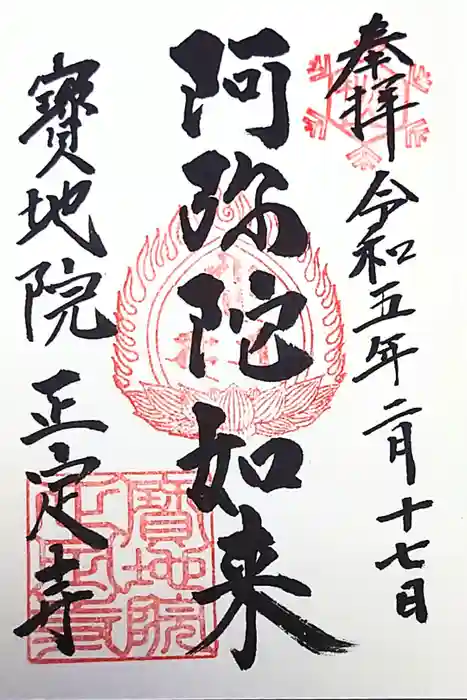 奉拝 令和五年二月十七日
阿弥陀如来
寶地院 正定寺
寶地院
正定寺